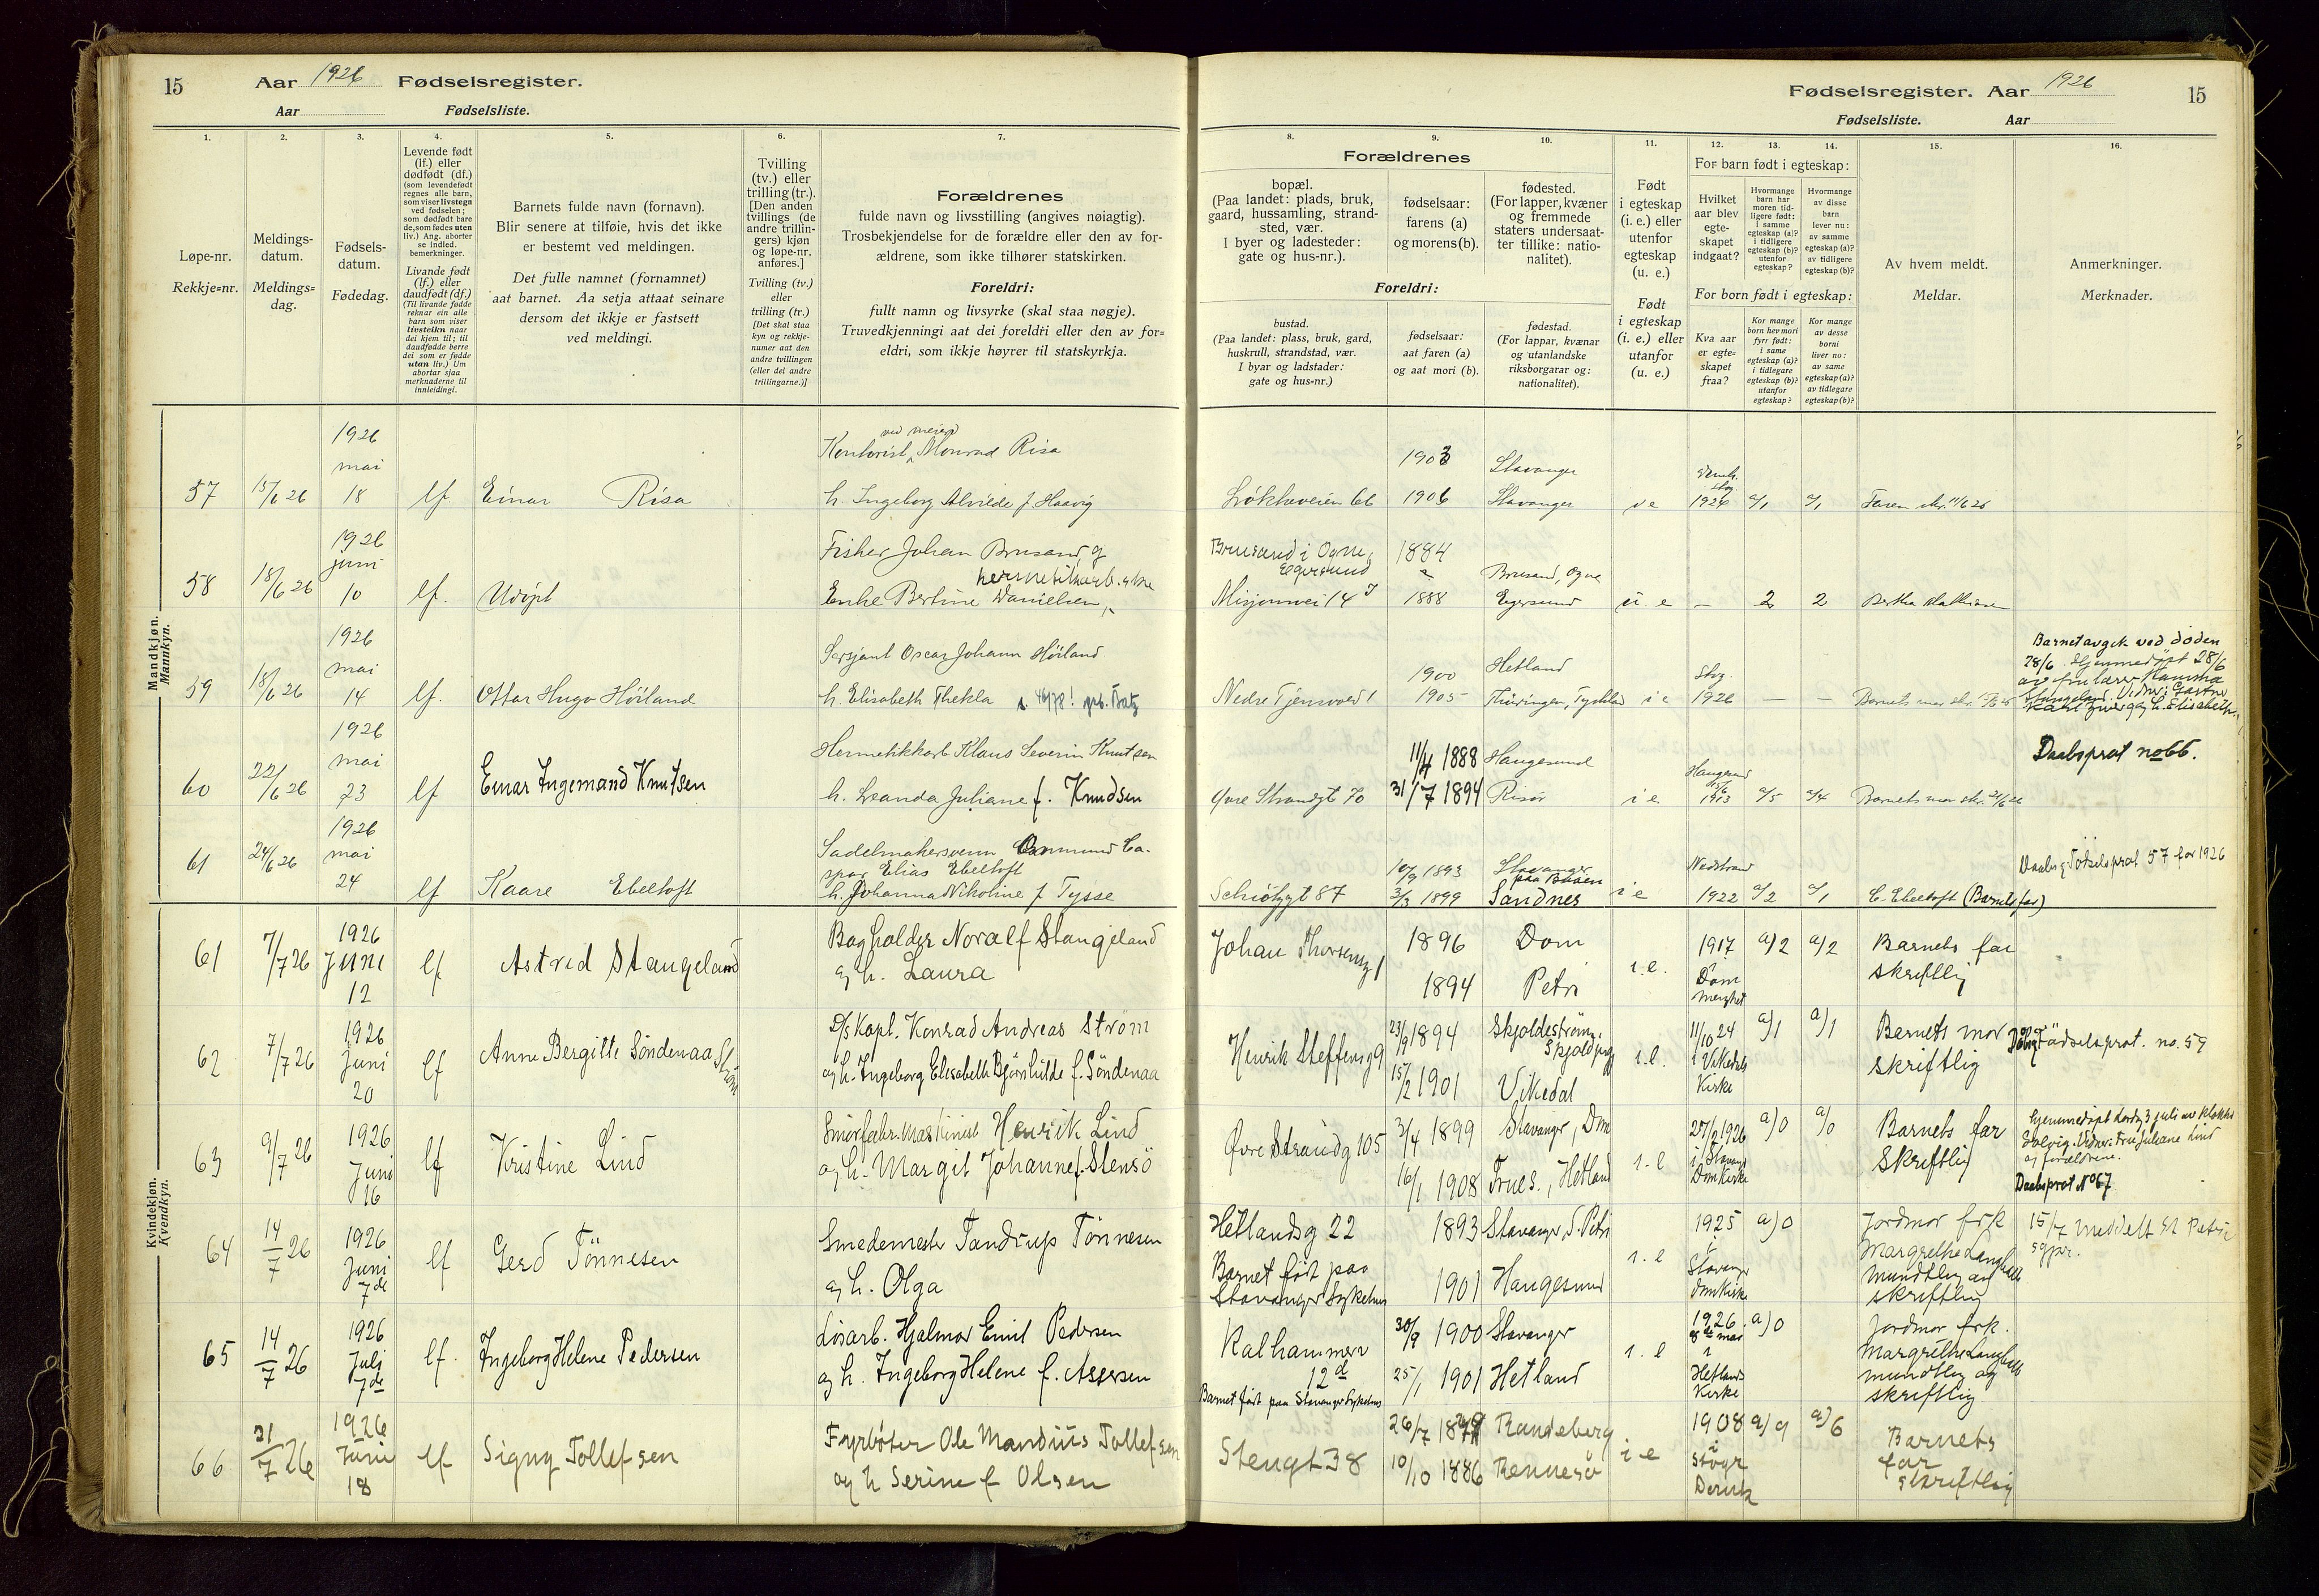 15
Aar 1926 Fødselsregister.
Aar Fødselsliste.
1.
Løpe-nr.
Rekkje=nr.
2.
Meldings-
datum.
Meldings=
dag.
3.
Fødsels-
datum.
Fødedag.
4.
Levende født
(lf.) eller
dødfødt (df.)
(som levendefødt
regnes alle barn,
som viser livstegn
ved fødselen;
som dødfødt bare
de, som fødes uten
liv.) Ang. aborter
se indled.
bemerkninger.
Livande født
(lf.) eller
daudfødt (df.)
(Til livande fødde
reknar ein alle
barn som viser
livsteikn naar
dei kjem til; til
daudfødde berre
dei som er fødde
utan liv.) Um
abortar sjaa
merknaderne til
innleidingi.
5.
Barnets fulde navn (fornavn).
Blir senere at tilføie, hvis det ikke
er bestemt ved meldingen.
Det fulle namnet (fornamnet)
aat barnet. Aa setja attaat seinare
dersom det ikkje er fastsett
ved meldingi.
6.
Tvilling
(tv.) eller
trilling (tr.).
[Den anden
tvillings (de
andre trillin-
gers) kjøn
og løpe-nr.
anføres.]
Tvilling (tv.)
eller
trilling (tr.)
[Det skal staa
kyn og rekkje-
numer aat den
andre tvillingen
(eller dei andre
trillingarne.)]
7.
Forældrenes
fulde navn og livsstilling (angives nøiagtig).
Trosbekjendelse for de forældre eller den av for-
ældrene, som ikke tilhører statskirken.
Foreldri:
fullt namn og livsyrke (skal staa nøgje).
Truvedkjenningi aat dei foreldri eller den av for=
eldri, som ikkje høyrer til statskyrkja.
Mandkjøn.
Mannkyn.
57 15/6 26 1926 mai 18 lf. Einar Risa
Kontorist ved meieri Monrad Risa
h. Ingeborg Alvilde f. Haavig
58 18/6 26 1926 juni 10 lf. Udøpt
Fisker Johan Brusand, og
Enke Bertine Danielsen,
59 18/6 26 1926 mai 14 lf. Ottar Hugo Höiland
Sersjant Oscar Johann Höiland
h. Elisabeth Thekla
60 22/6 26 1926 mai 23 lf Einar Ingemand Knutsen
Hermetikkarb Klaus Severin Knutsen
h. Leanda Juliane f. Knudsen
61 24/6 26 1926 mai 24 lf Kaare Ebeltoft
Sadelmakersvenn Ca-
spar Elias Ebeltoft
h. Johanna Nikoline f Tysse
Kvindekjøn.
Kvendkyn.
61 7/7 26 1926 Juni 12 lf Astrid Stangeland
Bogholder Noralf Stangeland
og h. Laura
62 7/7 26 1926 Juni 20 lf Anne Bergitte Söndenaa Ström
D/s Kapt. Konrad Andreas Ström
og h. Ingeborg Elisabeth Bjørnhilde f. Söndenaa
63 9/7 26 1926 Juni 16 lf Kristine Lind
Smörfabr. Maskinist Henrik Lind
og h. Margit Johanne f. Stensö
64 14/7 26 1926 Juni 7de lf Gerd Tönnesen
Smedemester Tandrup Tönnesen
og h. Olga
65 14/7 26 1926 Juli 7de lf. Ingeborg Helene Pedersen
Løsarb. Hjalmar Emil Pedersen
og h. Ingeborg Helene f. Assersen
66 21/7 26 1926 Juni 18 lf Signy Tollefsen
Fyrbøter Ole Mandius Tollefsen
og h Serine f Olsen
Fødselsregister. Aar 1926
15
Fødselsliste. Aar
8.
Forældrenes
bopæl.
(Paa landet: plads, bruk,
gaard, hussamling, strand-
sted, vær.
I byer og ladesteder:
gate og hus-nr.).
9.
fødselsaar:
farens (a)
og morens (b).
10.
fødested.
(For lapper, kvæner
og fremmede
staters undersaat-
ter tillike: natio-
nalitet).
Foreldri:
bustad.
(Paa landet: plass, bruk, gard,
huskrull, strandstad, vær.
I byar og ladstader:
gate og hus=nr.)
fødselsaar:
aat faren (a)
og aat mori (b).
fødestad.
(For lappar, kvænar
og utanlandske
riksborgarar og:
nationalitet).
11.
Født
i egteskap
(i. e.) eller
utenfor
egteskap
(u. e.)
Født
i egteskap
(i. e.) eller
utanfor
(u. e.)
12. 13. 14.
For barn født i egteskap:
Hvilket
aar blev
egte-
skapet
indgaat?
Hvormange
barn har
moren tid-
ligere født:
i samme
egteskap (a)?
i tidligere
egteskap (b)?
utenfor
egteskap?
Hvormange
av disse
barn
lever nu:
av samme
egteskap (a)?
av tidligere
egteskap (b)?
For born født i egteskap:
Kva aar
er egte=
skapet
fraa?
Kor mange
born hev mori
fyrr født:
i same
egteskap (a)?
i tidlegare
egteskap (b)?
utanfor
egteskap?
Kor mange
av desse
borni
liver no:
av same
egteskap (a)?
av tidlegare
egteskap (b)?
15.
Av hvem meldt.
Meldar.
16.
Anmerkninger.
Merknader.
Løkkeveien 66 1903 Stavanger
1906 Stavanger i e 1926 a/1 a/1 Faren skr. 11/6 26
Brusand i Ogne, 1884
Egersund Brusand, Ogne
Misjonsvei 14 1888 Egersund u. e – 2 2
1900 Hetland Stvg.
Nedre Tjensvoll 1 1905 Thüringen, Tyskland i e 1926 – – Barnets mor skr.
Barnet avgik ved döden
28/6. Hjemmedöpt 28/6
11/4 1888 Haugesund Haugesund
Øvre Strandgt 70 31/7 1894 Risør i e 1913 a/5 a/4 Barnets mor skr. 21/6 26
Daabsprot no 66.
10/9 1893 Stavanger Nedstrand
Schiötzgt 87 3/3 1899 Sandnes i e 1922 a/2 a/1 C. Ebeltoft (Barnets far)
Daabs og Födselsprot 57 for 1926
Johan Thorsensg 1 1896 Dom
1894 Petri i. e. 1917 i Dom menighet a)2 a)2 Barnets far
skriftlig
Henrik Steffensg 9 23/9 1894 Skjoldestrøm,
Skjold pgj
15/2 1901 Vikedal i. e. 11/10 24 i Vikedals Kirke a)1 a)1 Barnets mor
skriftlig
Födselsprot. no. 59
Øvre Strandg 105 3/4 1899 Stavanger, Dom
16/1 1908 Frues., Hetland i. e 27/2 1926 i Stavanger Domkirke a)0 a/0 Barnets far
Skriftlig
Hjemmedøpt Lørdag 3 juli av klokker
Solvig. Vidner: Fru Juliane Lind
og forældrene.
Daabsprot No 67
Hetlandsg 22 1893 Stavanger, S. Petri
Barnet født paa
Stavanger Sykehus 1901 Haugesund i. e 1925 i Stavanger Domkirke a)0 Jordmor frk
Margrethe
mundtlig og
skriftlig
15/7 meddelt St Petri
sgpr.
Kalhammerv 12d 30/9 1900 Stavanger
25/1 1901 Hetland i. e 1926 8de mai i Hetlands Kirke a)0 Jordmor frk.
Margrethe
mundtlig og
skriftlig
Barnet født paa Stavanger Sykehus
Stengt 38 26/7 Randeberg
10/10 1886 Rennesø i e 1908 i a)9 a)6 Barnets
far
skriftlig